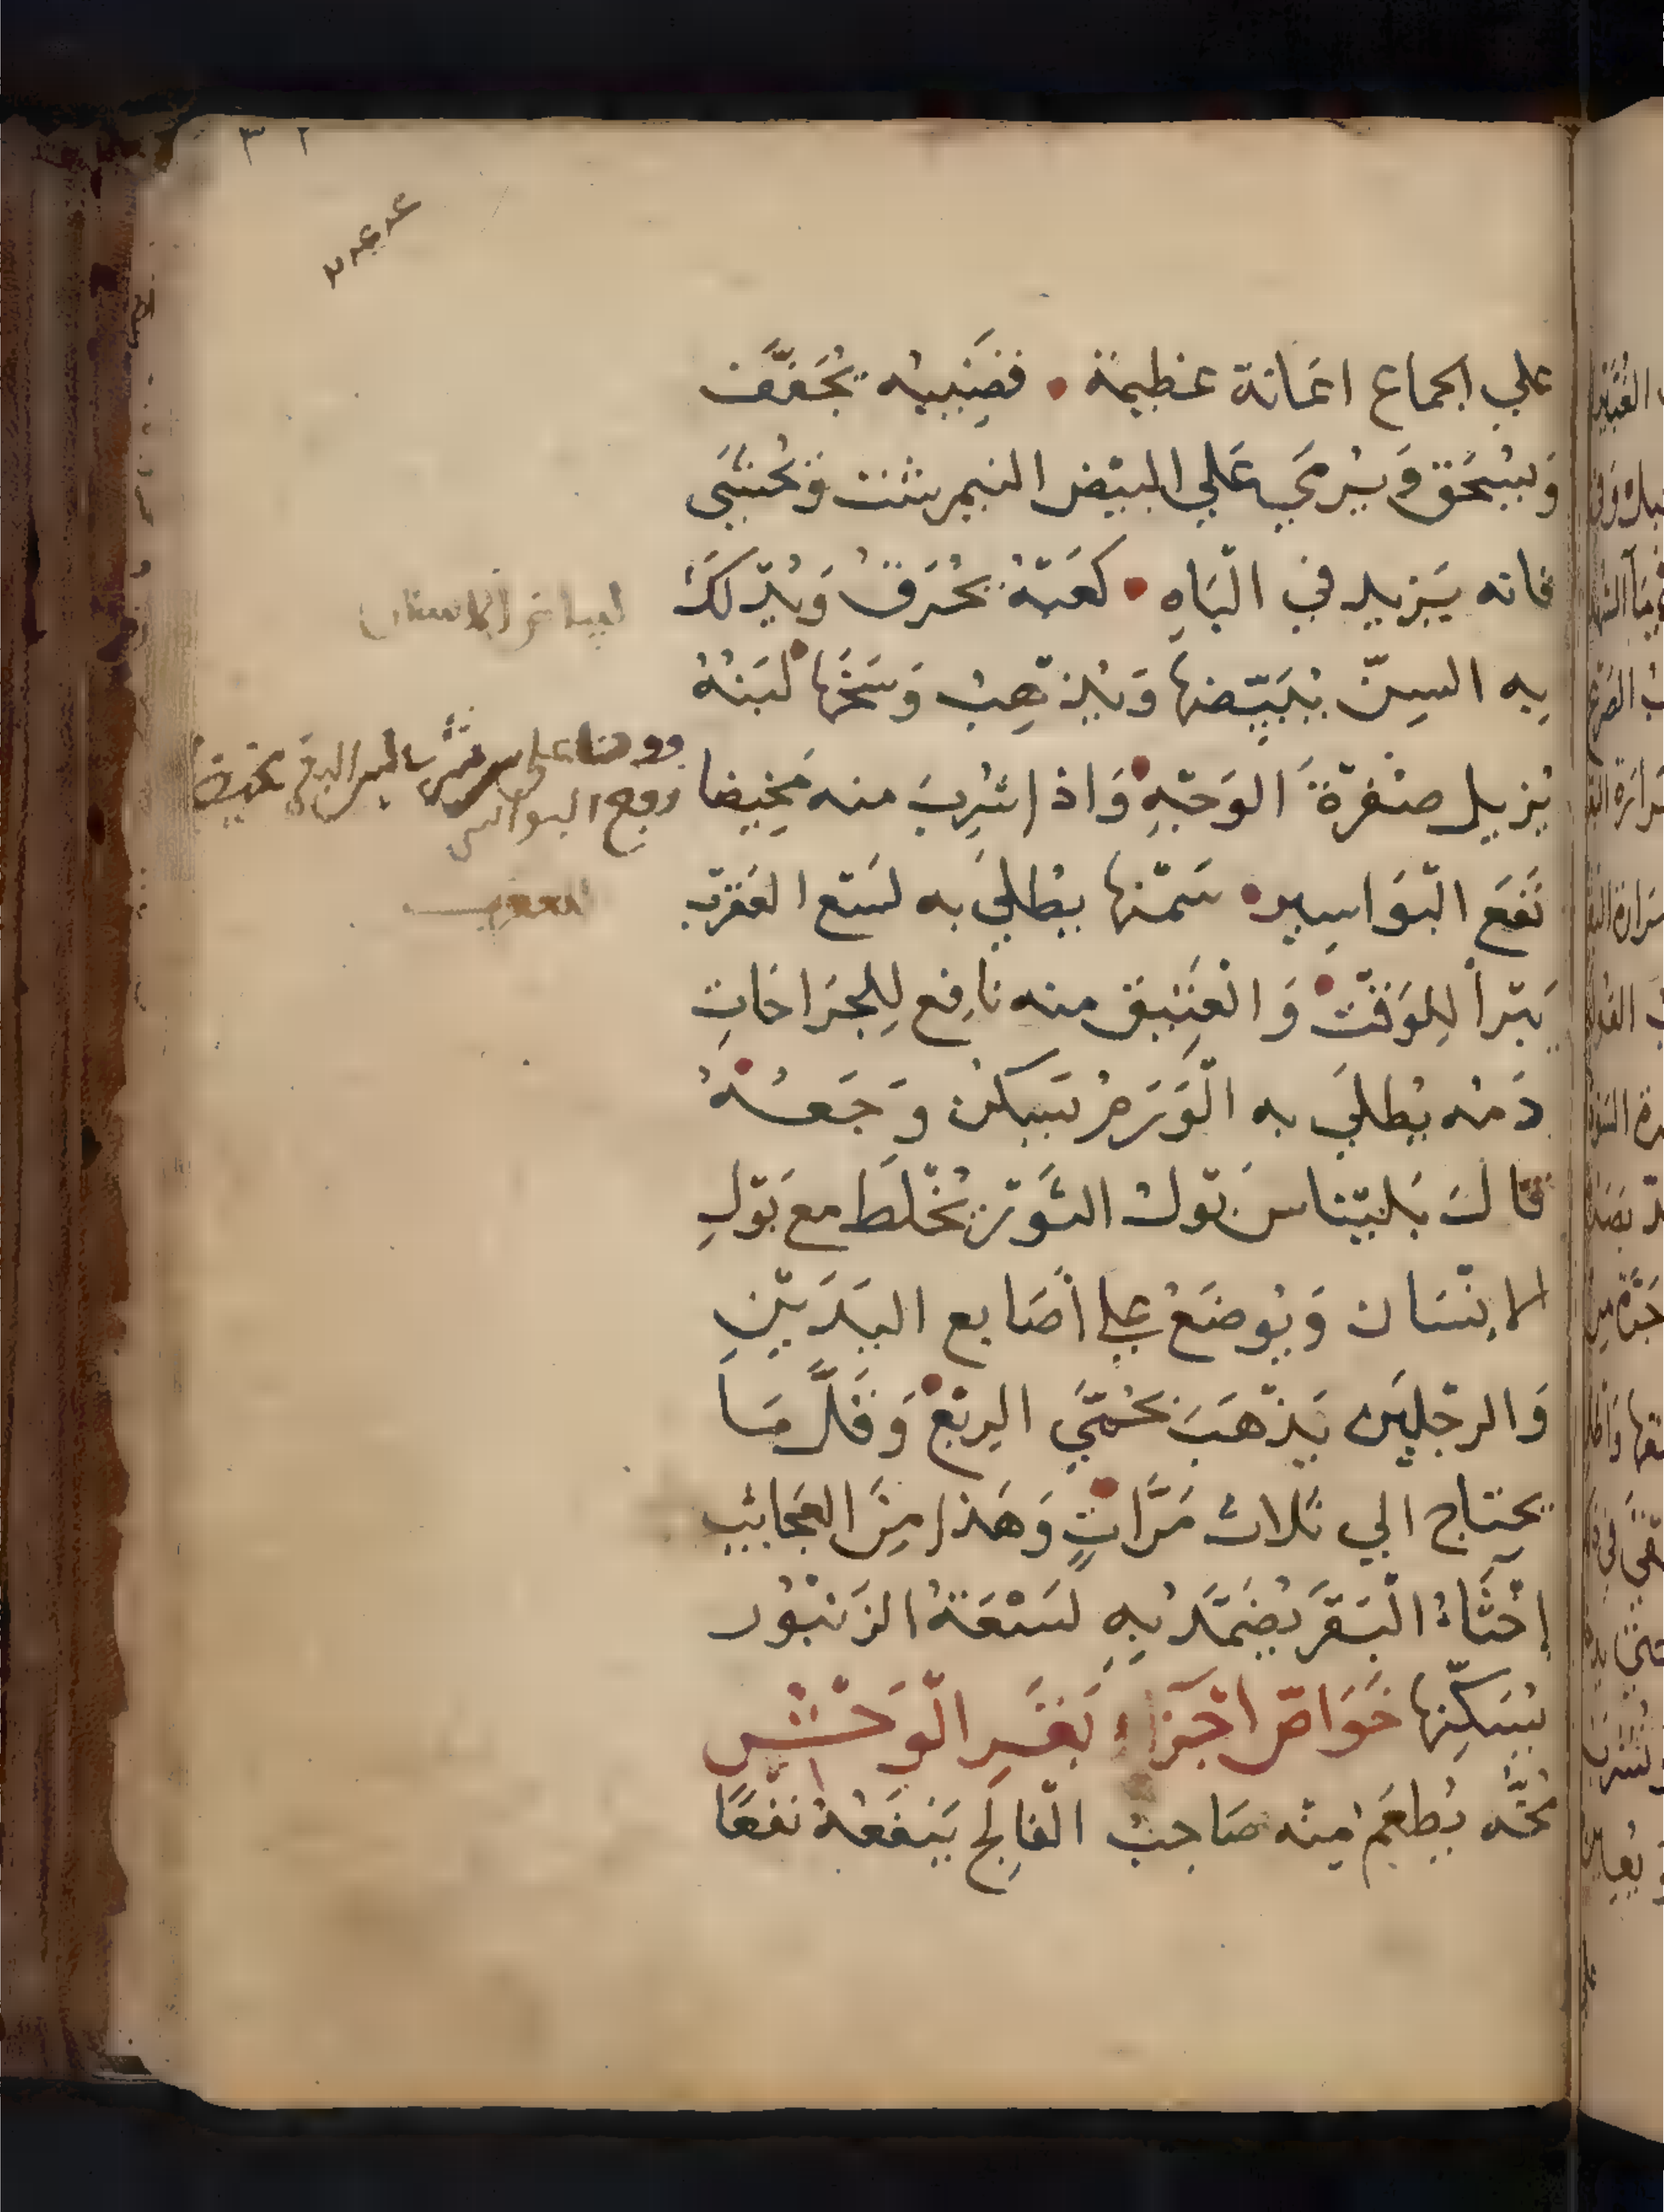 ٣٢
علي الجماع اعَانة عظيمة • قضِيبه يُجَفَّف
وَيُسْحَق وَيُرمَي عَلي البيْض النيمرشت وَيُحتسَى
فانه يَزيد في الْبَاهِ • كعَبْهُ يُحْرَقُ وَيُدْلكَُ
بِه السِنّ يُبَيّضهَا وَيُذهِبُ وَسَخَها لبَنُهُ
يُزيل صُفْرَةَ الوَجْهِ وَاذا شُرِبَ منه مَخِيضا
نَفَعَ البَوَاسِير • سَمْنها يُطلَي به لسْع العَقرَب
يَبْرأ لِلوَقتْ وَالعَتِيق منه نافِع لِلجرَاحَاتِ
دَمُه يُطلَي به الْوَرَمُ يسَكن وَجَعُهُ
قالَ بَليْناس بَوْلُ الثَّوْر يُخْلَط مع بَوْلِ
الاِنْسَان وَيُوضَعُ علي أصَابع اليَدَيْنِ
وَالرجْلين يَذْهَبَ بحُمَّي الرِبْع وَقَلَّمَا
يحتاج الي ثلاث مَرَّاتٍ وَهَذا مِنَ العَجايبِ
إخْثَاءُ الْبَقَر يُضَمَّدُ بِهِ لسْعَةُ الزنْبُور
يُسَكِّنها خَوَاصّ اجْزاء بَقَر الْوَحْش
مُخُّه يُطعَم مِنْه صَاحِبُ الْفَالِج يَنفَعهُ نَفْعًا